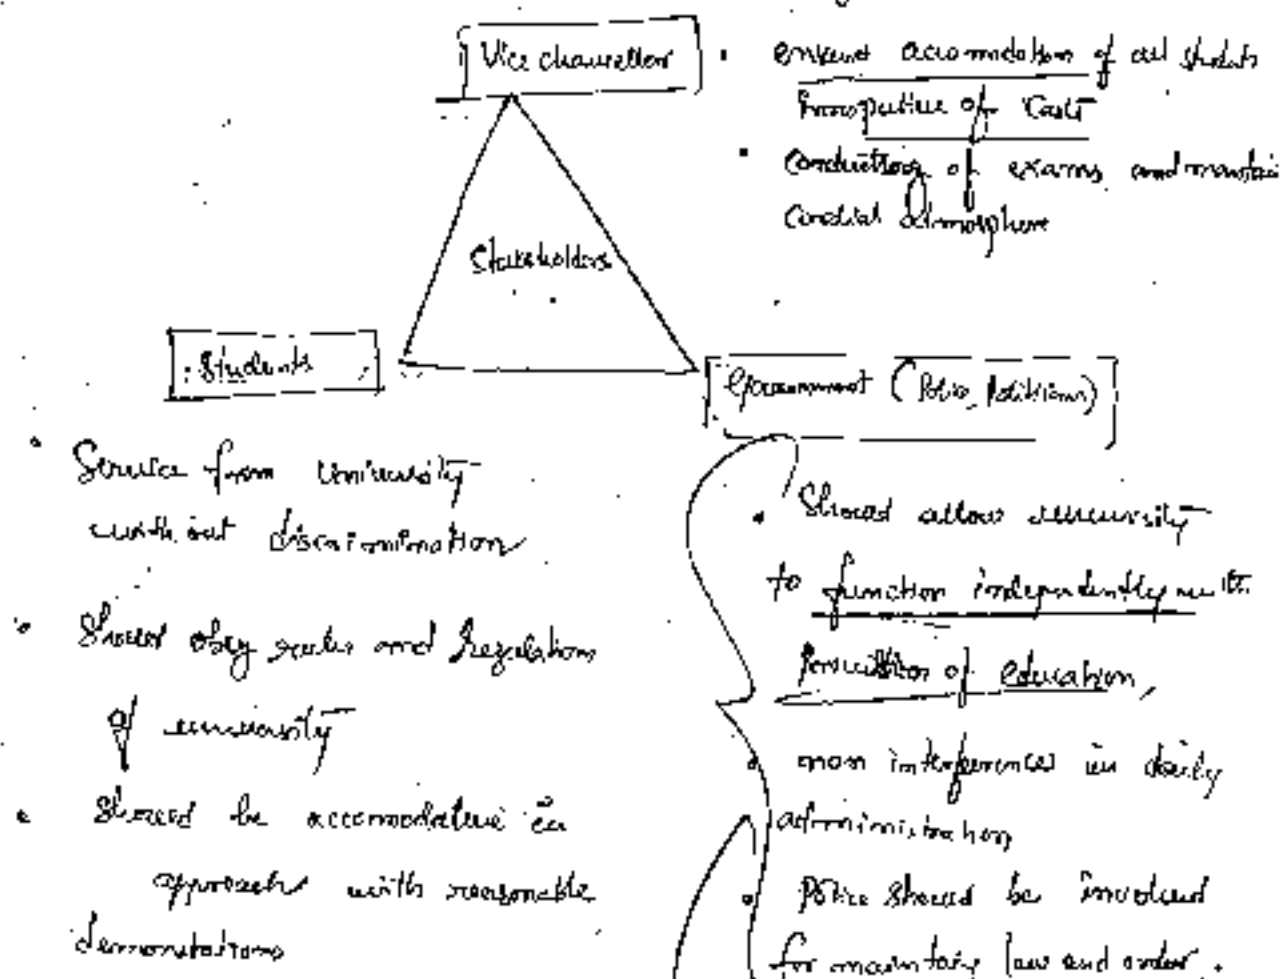 Vice chancellor
• ensure accomodation of all students
irrespective of Caste
• conduction of exams and maintain
cordial atmosphere
Stakeholders
Students
Government (Police, Politicians)
• Service from University
without discrimination
• Should obey rules and Regulations
of university
• Should be accomodative in
approach with reasonable
demonstrations
• Should allow university
to function independently with
of education,
• non interference in daily
administration
• Police should be involved
for maintaing law and order.